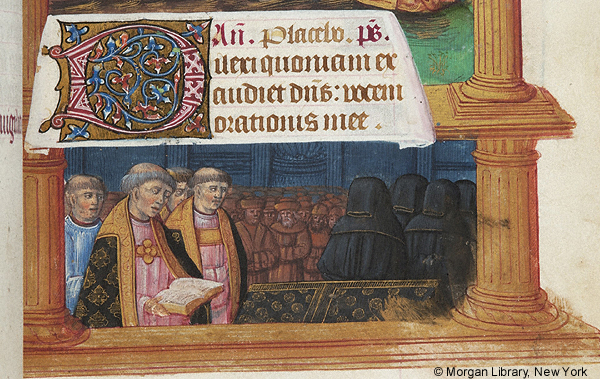 Añ. Placebo. ps̄.
Dilexi quoniam ex
audiet dñs: vocem
orationis mee.
© Morgan Library, New York